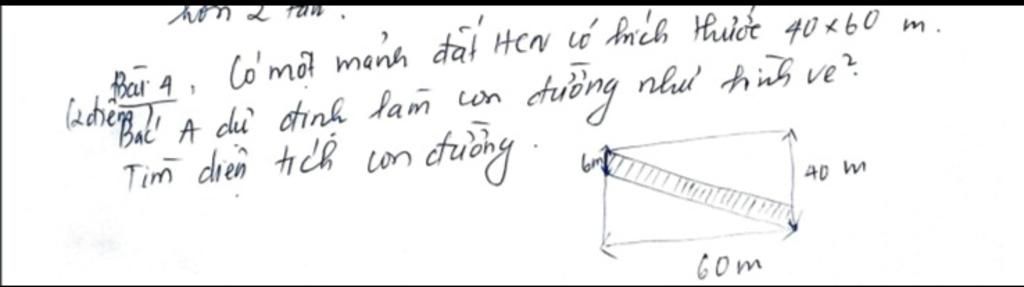 hơn 2 lần.
Bài 4, Có một mảnh đất HCN có kích thước 40x60 m.
(2điểm) Bác A dự định làm con đường như hình vẽ?
Tìm diện tích con đường.
6m
40 m
60m